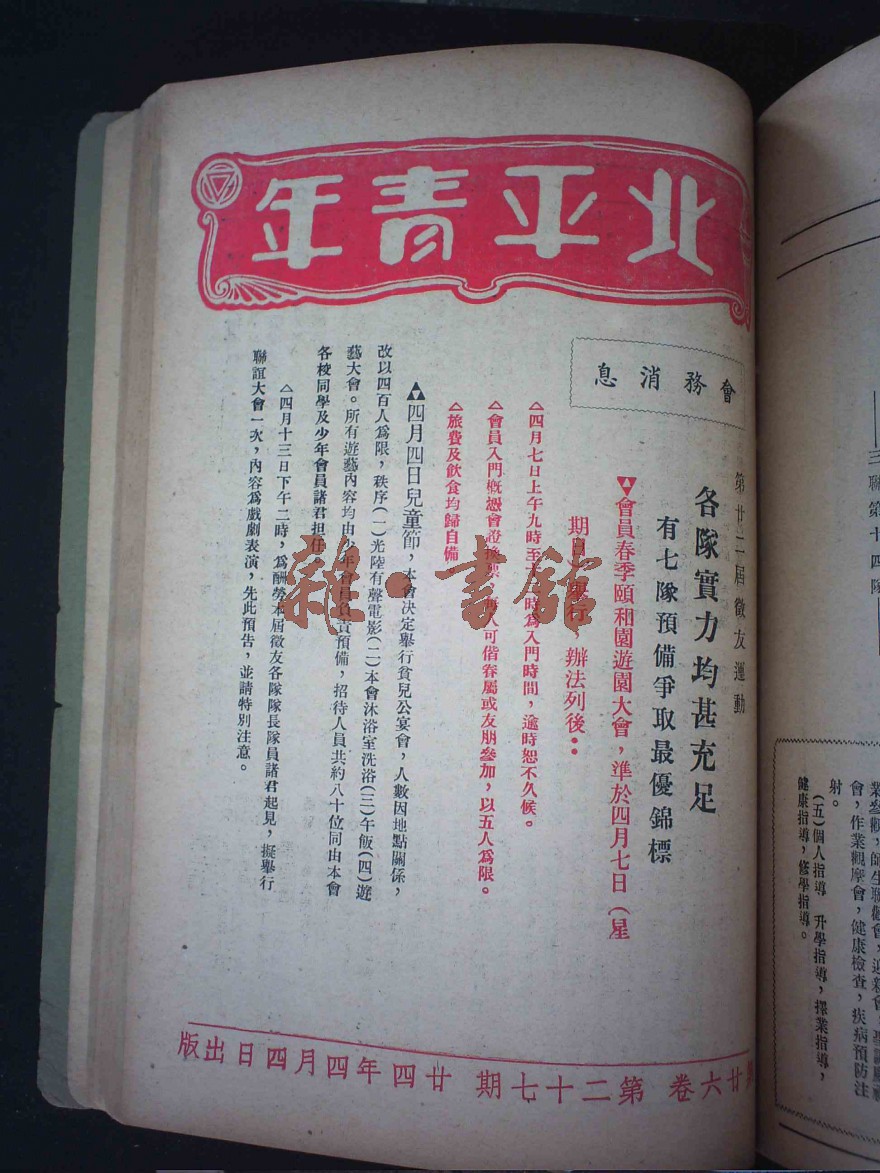 北平青年
會務消息
第廿二屆徵友運動
各隊實力均甚充足
有七隊預備爭取最優錦標
▼會員春季頤和園遊園大會，準於四月七日（星
期日）舉行，辦法列後：
△四月七日上午九時至十一時為入門時間，逾時恕不久候。
△會員入門概憑會證換票，每人可偕眷屬或友朋參加，以五人為限。
△旅費及飲食均歸自備
▲四月四日兒童節，本會決定舉行貧兒公宴會，人數因地點關係，
改以四百人為限，秩序（一）光陸有聲電影（二）本會沐浴室洗浴（三）午飯（四）遊
藝大會。所有遊藝內容均由少年會員負責預備，招待人員共約八十位同由本會
各校同學及少年會員諸君担任
△四月十三日下午二時，為酬勞本屆徵友各隊隊長隊員諸君起見，擬舉行
聯誼大會一次，內容為戲劇表演，先此預告，並請特別注意。
廿六卷 第二十七期 廿四年四月四日出版
雜·書館
三聯第十四隊
會，作業觀摩會，健康檢查，疾病預防注
射。
（五）個人指導 升學指導，擇業指導，
健康指導，修學指導。